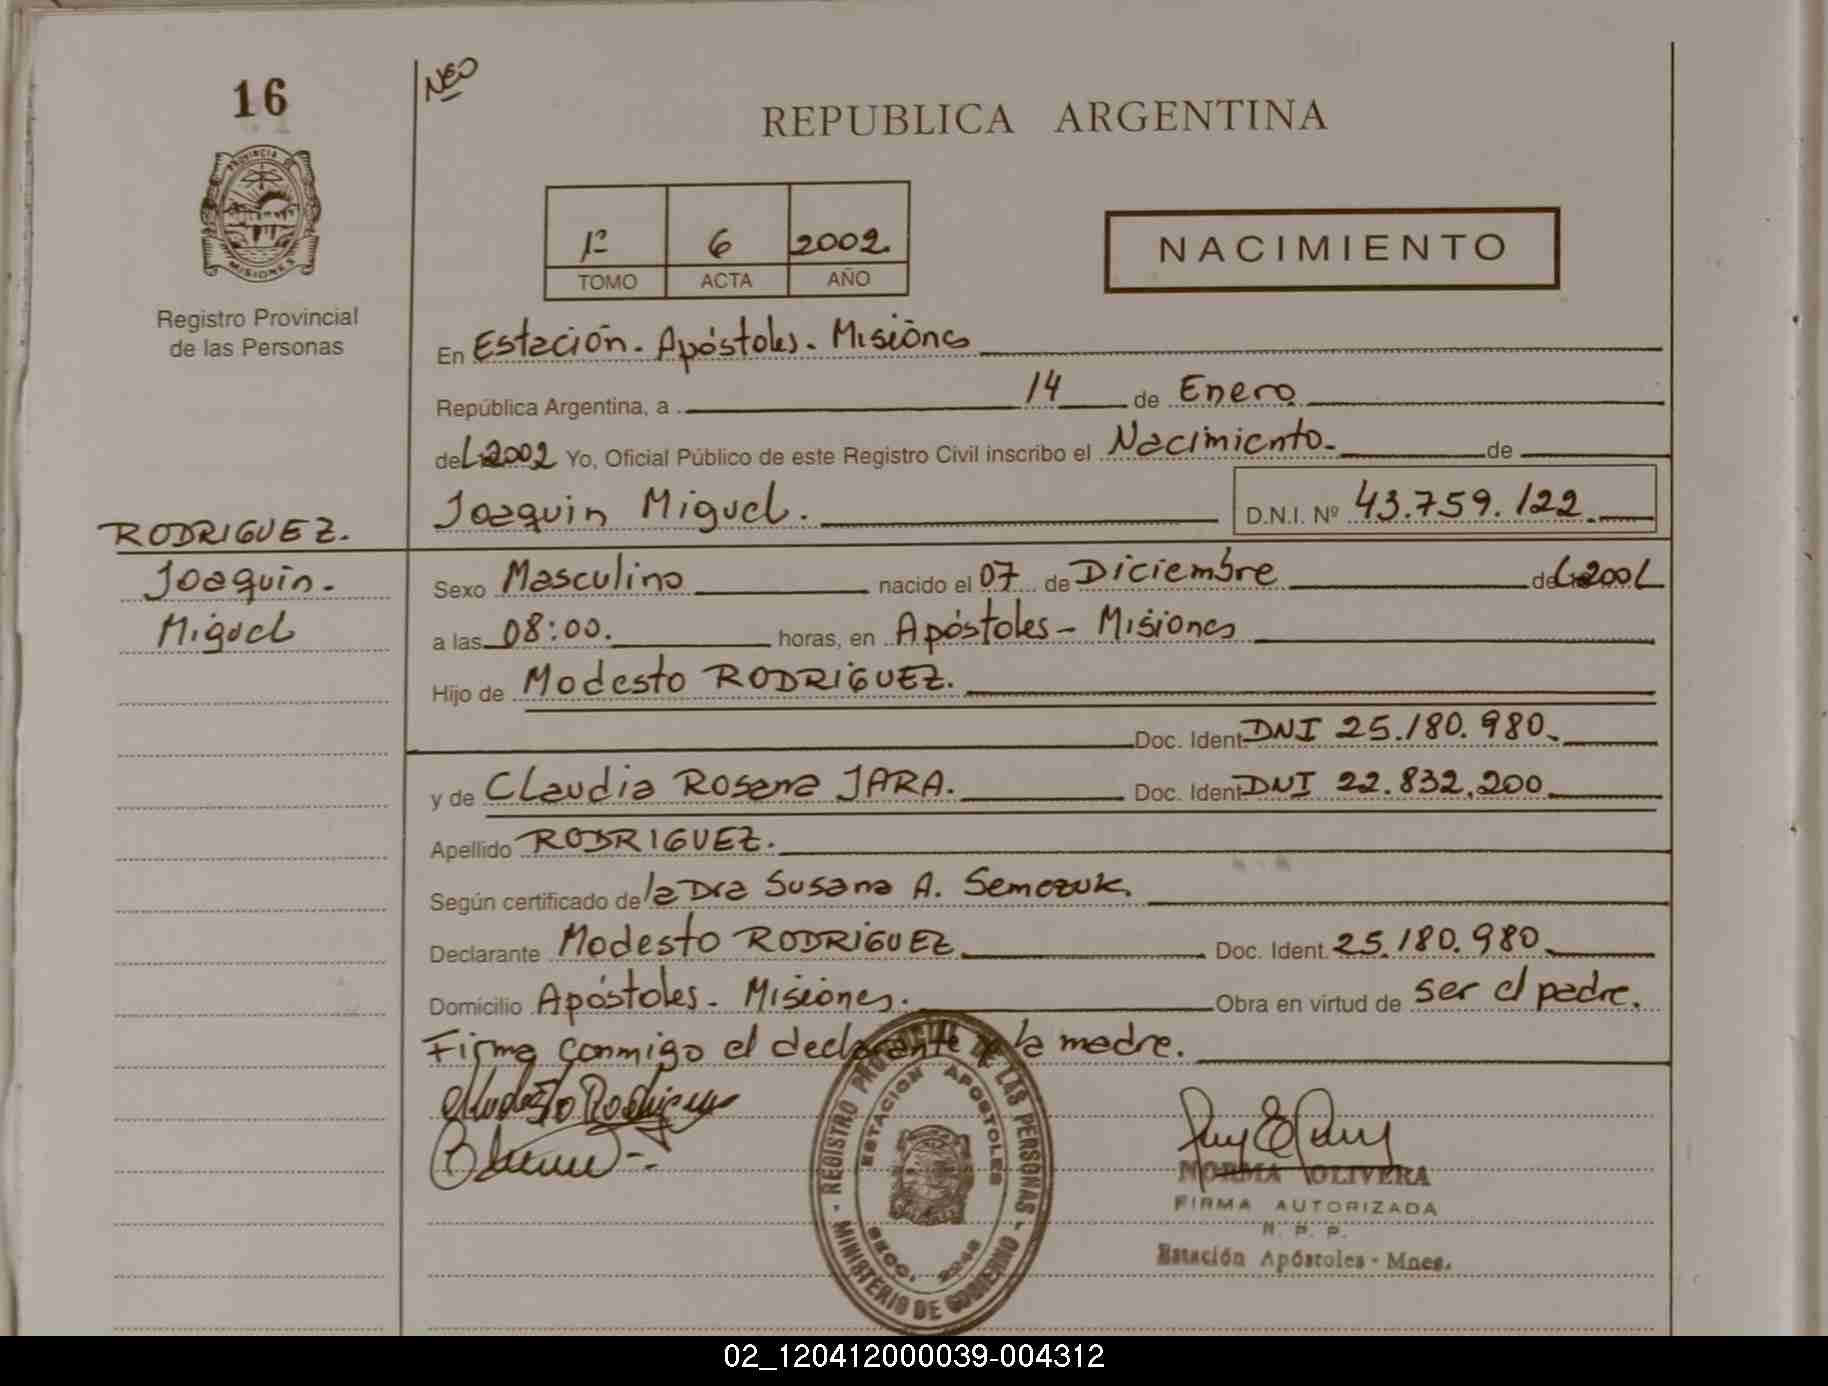 16
NEO
REPUBLICA ARGENTINA
PROVINCIA DE MISIONES
Registro Provincial
de las Personas
1º 6 2002
TOMO ACTA AÑO
NACIMIENTO
En Estación - Apóstoles - Misiones
República Argentina, a 14 de Enero
del 2002 Yo, Oficial Público de este Registro Civil inscribo el Nacimiento de
Joaquin Miguel. D.N.I. Nº 43.759.122
RODRIGUEZ.
Joaquin.
Miguel
Sexo Masculino nacido el 07 de Diciembre del 2001
a las 08:00. horas, en Apóstoles - Misiones
Hijo de Modesto RODRIGUEZ.
Doc. Ident. DNI 25.180.980
y de Claudia Rosana JARA. Doc. Ident. DNI 22.832.200
Apellido RODRIGUEZ.
Según certificado de la Dra Susana A. Semczuk.
Declarante Modesto RODRIGUEZ Doc. Ident. 25.180.980
Domicilio Apóstoles - Misiones. Obra en virtud de ser el padre.
Firma conmigo el declarante y la madre.
Modesto Rodriguez
REGISTRO PROVINCIAL DE LAS PERSONAS - MINISTERIO DE GOBIERNO -
ESTACION APOSTOLES
SECC.
NORMA OLIVERA
FIRMA AUTORIZADA
R. P. P.
Estación Apóstoles - Mnes.
02_120412000039-004312